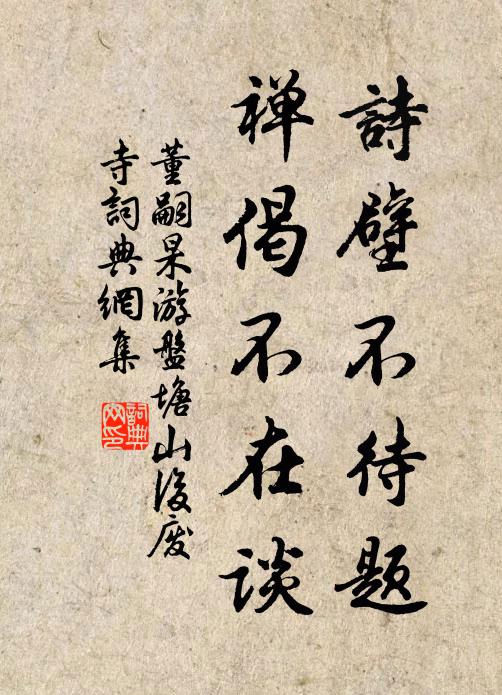 詩壁不待題
禅偈不在談
董嗣杲游盤塘山後廢
寺詞典網集
詞典网印